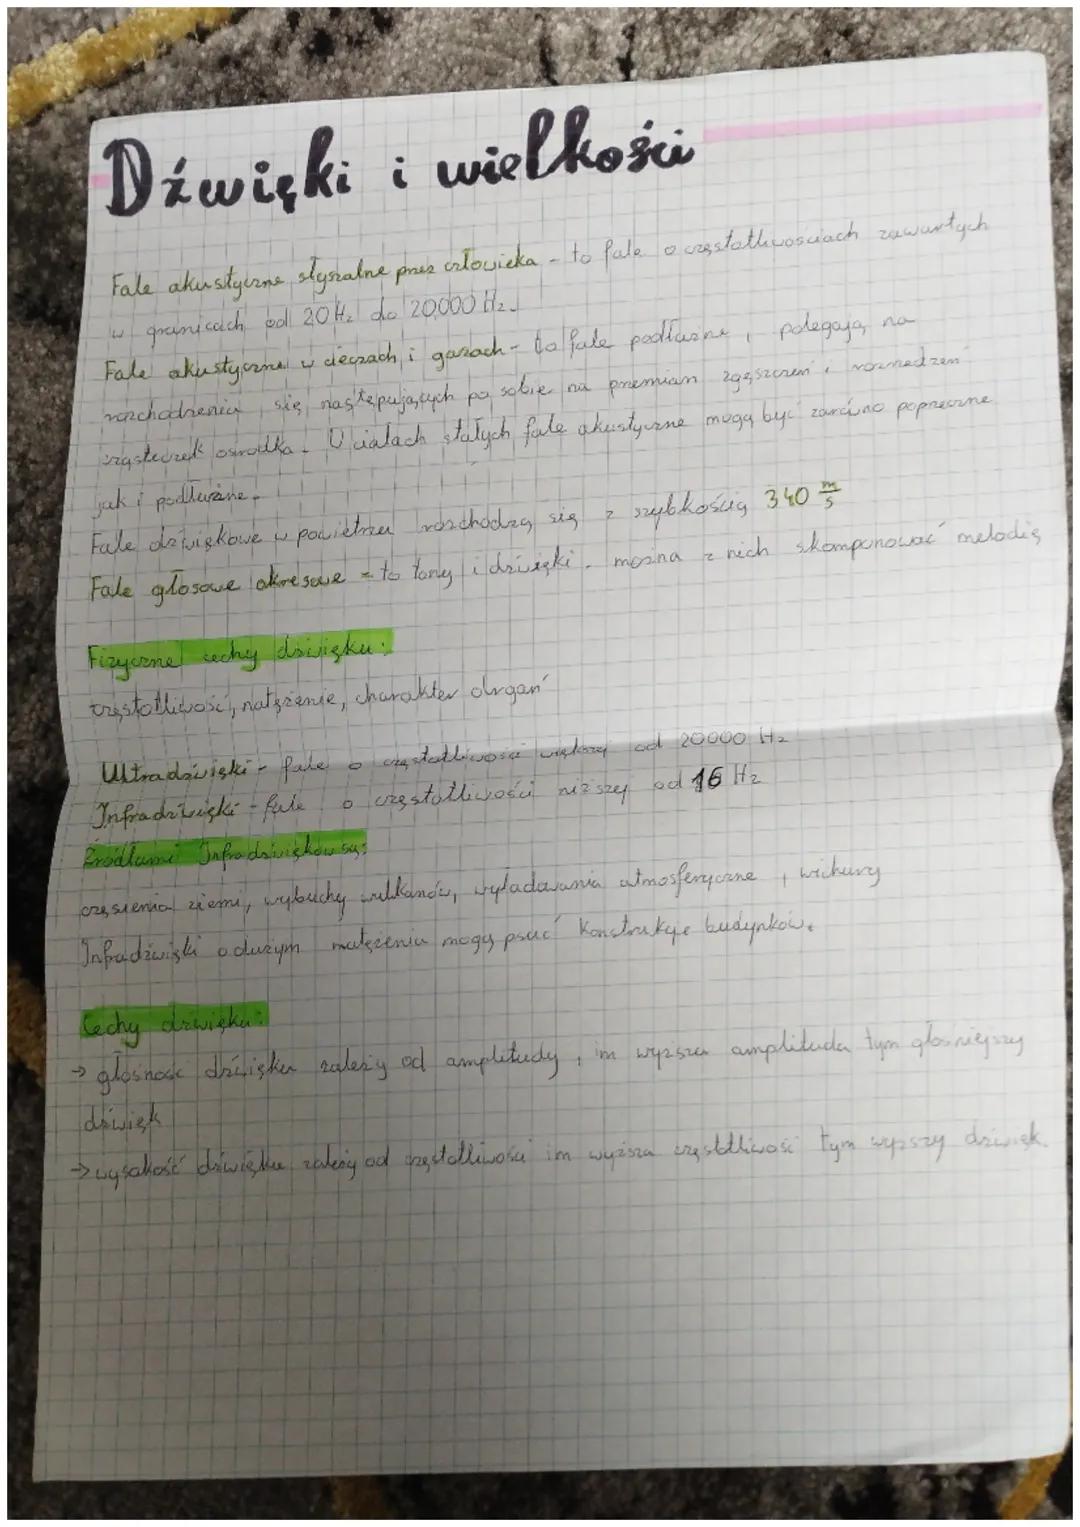 Dźwięki i wielkości
Fale akustyczne słyszalne przez człowieka - to fale o częstotliwościach zawartych
w granicach od 20 Hz do 20000 Hz.
Fale akustyczne w cieczach i gazach - to fale podłużne, polegają na
rozchodzeniu się następujących po sobie na przemian zgęszczeń i rozrzedzeń
cząsteczek ośrodka. W ciałach stałych fale akustyczne mogą być zarówno poprzeczne
jak i podłużne.
Fale dźwiękowe w powietrzu rozchodzą się z szybkością 340 m/s
Fale głosowe okresowe - to tony i dźwięki. można z nich skomponować melodię
Fizyczne cechy dźwięku:
częstotliwość, natężenie, charakter drgań
Ultradźwięki - fale o częstotliwości większej od 20000 Hz
Infradźwięki - fale o częstotliwości niższej od 16 Hz
Źródłami Infradźwięków są:
trzęsienia ziemi, wybuchy wulkanów, wyładowania atmosferyczne, wichury
Infradźwięki o dużym natężeniu mogą psuć konstrukcje budynków.
Cechy dźwięku:
→ głośność dźwięku zależy od amplitudy, im wyższa amplituda tym głośniejszy
dźwięk
→ wysokość dźwięku zależy od częstotliwości im wyższa częstotliwość tym wyższy dźwięk.